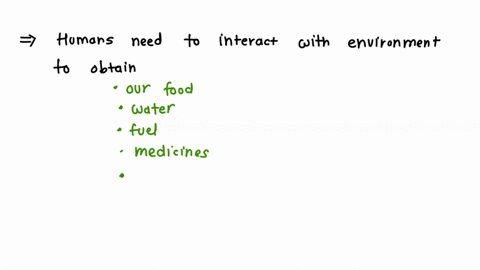 ⇒ Humans need to interact with environment
to obtain
• our food
• water
• fuel
• medicines
•